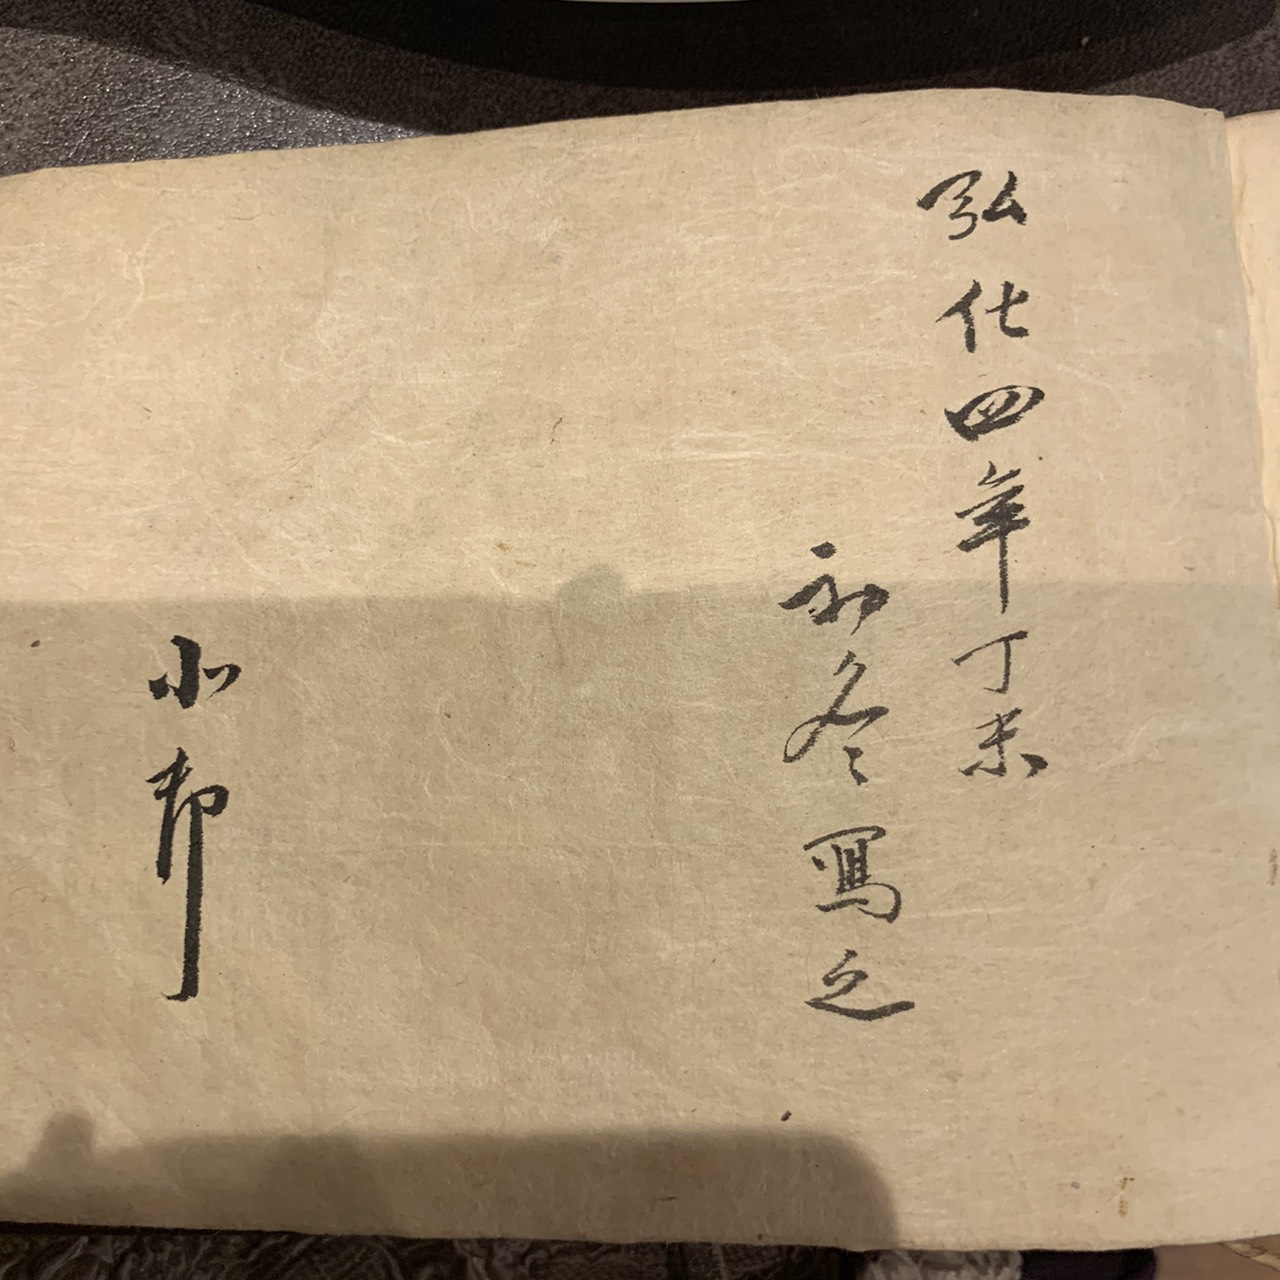 弘化四年丁未
初冬寫之
小